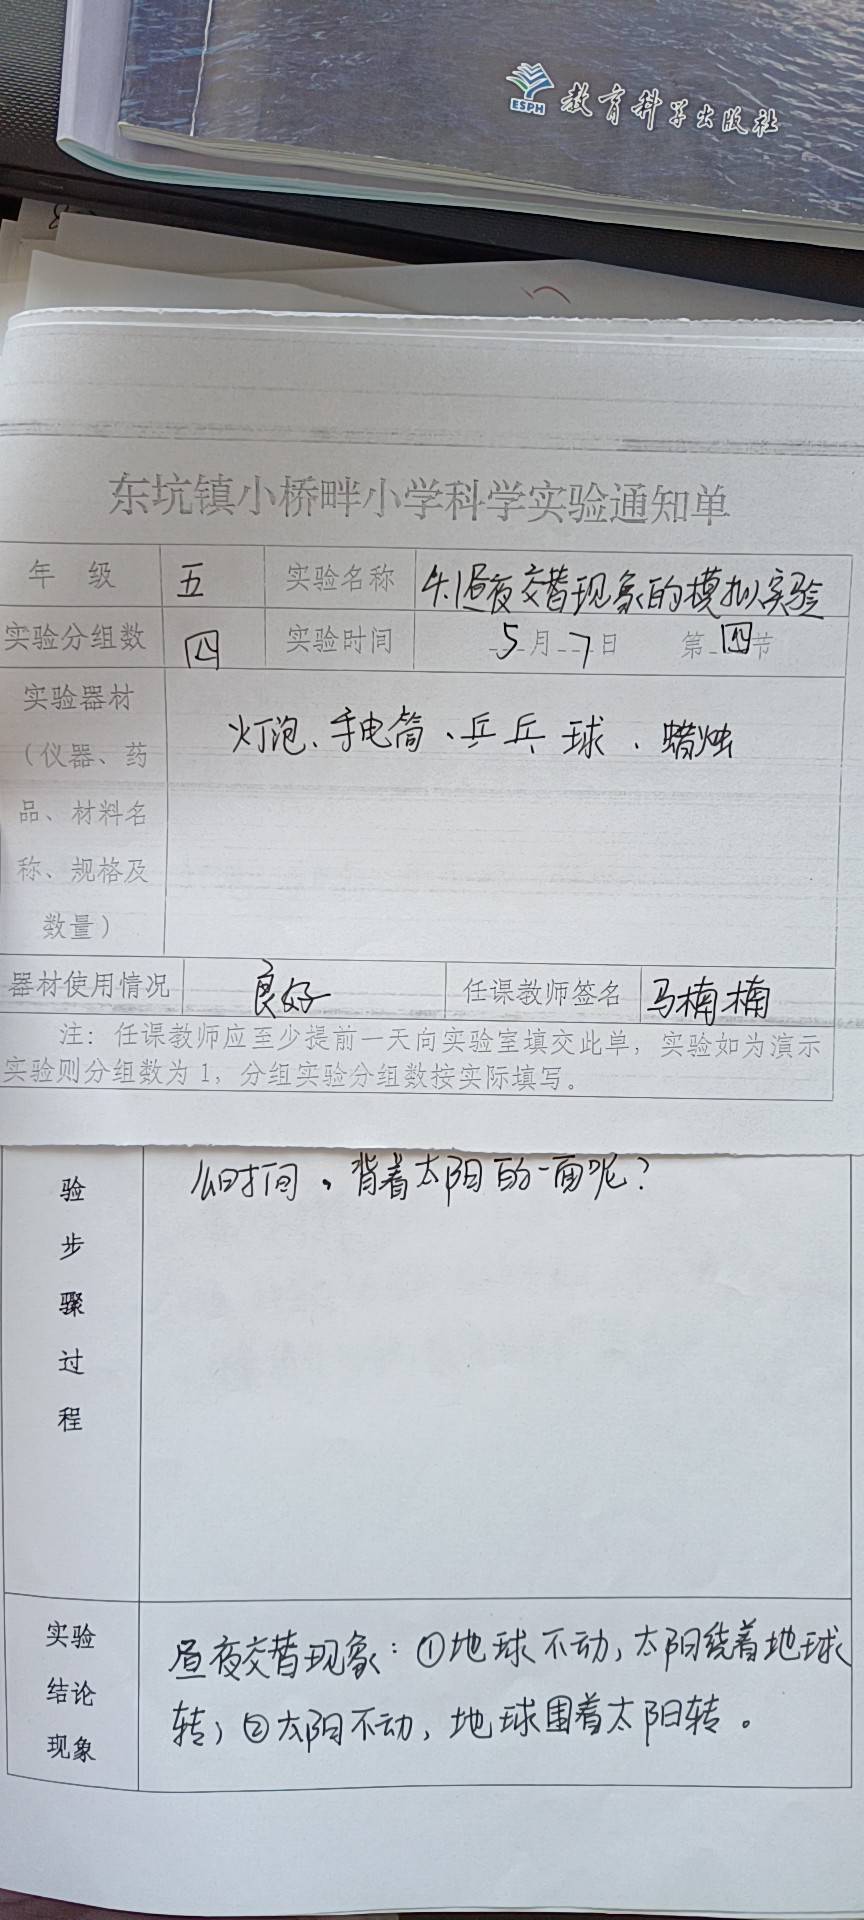 ESPH 教育科学出版社
东坑镇小桥畔小学科学实验通知单
年 级 五 实验名称 4.1昼夜交替现象的模拟实验
实验分组数 四 实验时间 5月7日 第四节
实验器材
（仪器、药
品、材料名
称、规格及
数量）
灯泡、手电筒、乒乓球、蜡烛
器材使用情况 良好 任课教师签名 马楠楠
注：任课教师应至少提前一天向实验室填交此单，实验如为演示
实验则分组数为1，分组实验分组数按实际填写。
验
步
骤
过
程
么时间，背着太阳的一面呢？
实验
结论
现象
昼夜交替现象：①地球不动，太阳绕着地球
转；②太阳不动，地球围着太阳转。